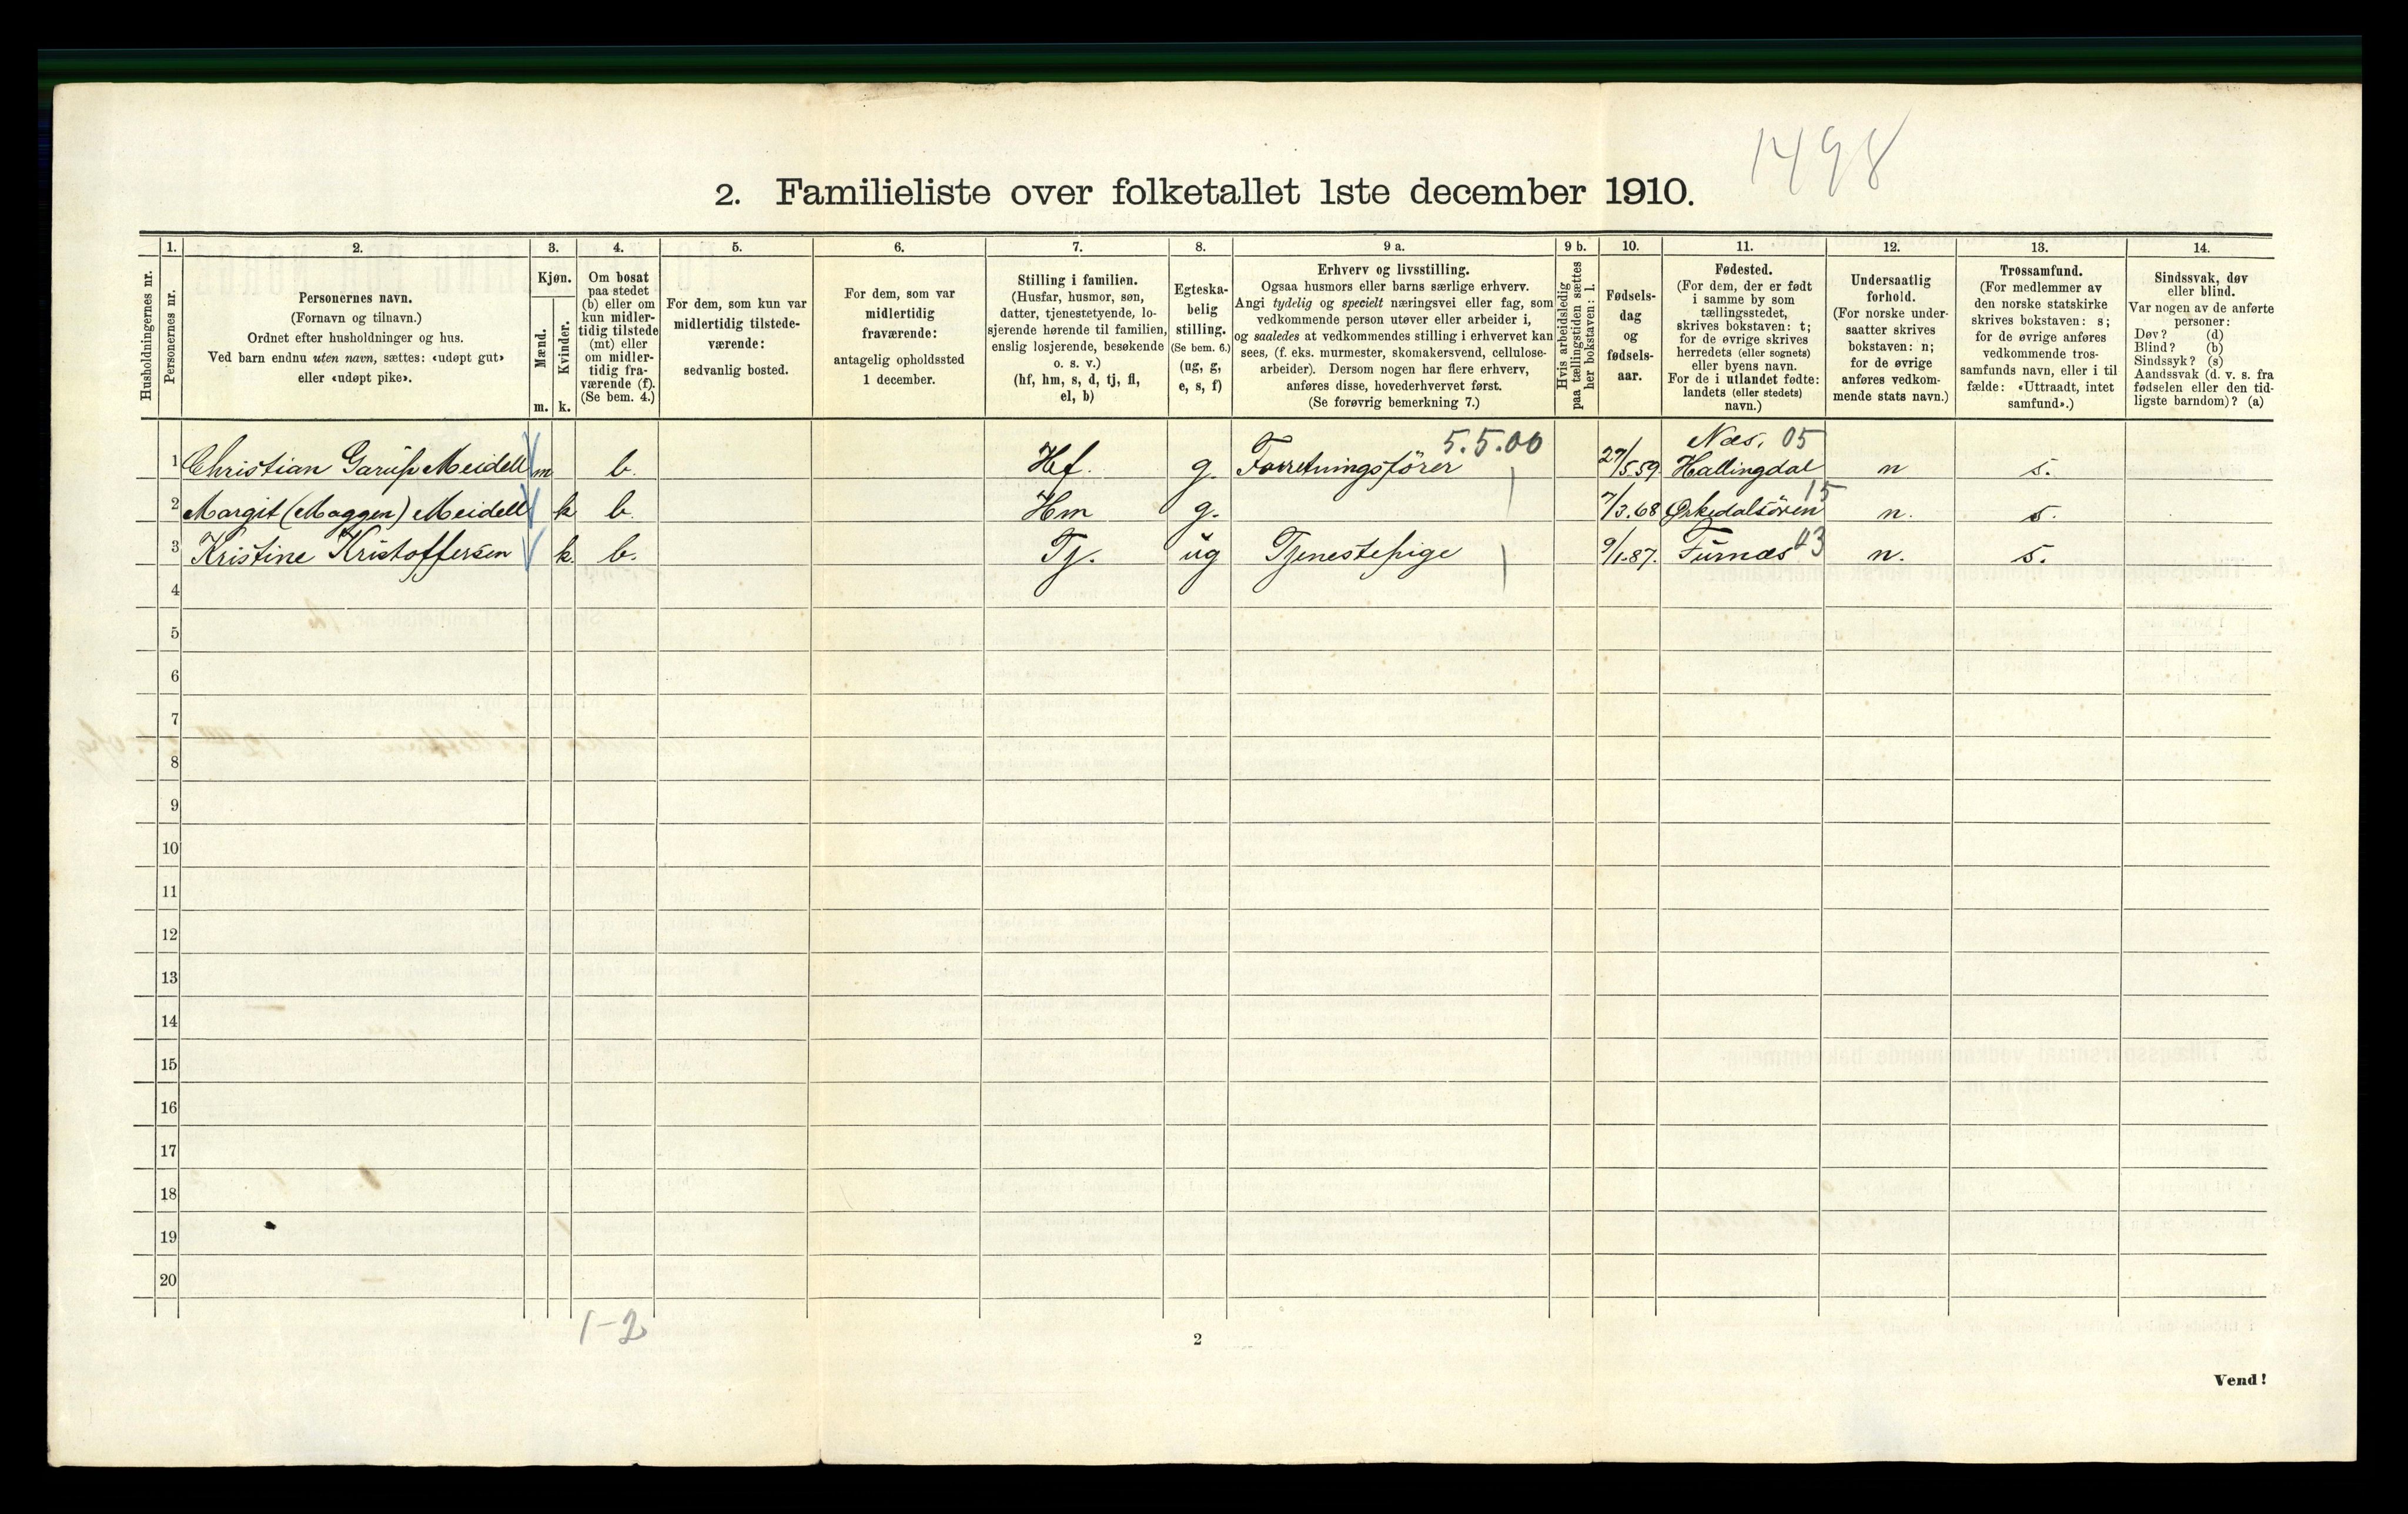 1498
2. Familieliste over folketallet 1ste december 1910.
Husholdningernes nr.
1.
Personernes nr.
2.
Personernes navn.
(Fornavn og tilnavn.)
Ordnet efter husholdninger og hus.
Ved barn endnu uten navn, sættes: «udøpt gut»
eller «udøpt pike».
3.
Kjøn.
Mænd.
m.
Kvinder.
k.
4.
Om bosat
paa stedet
(b) eller om
kun midler-
tidig tilstede
(mt) eller
om midler-
tidig fra-
værende (f).
(Se bem. 4.)
5.
For dem, som kun var
midlertidig tilstede-
værende:
sedvanlig bosted.
6.
For dem, som var
midlertidig
fraværende:
antagelig opholdssted
1 december.
7.
Stilling i familien.
(Husfar, husmor, søn,
datter, tjenestetyende, lo-
sjerende hørende til familien,
enslig losjerende, besøkende
o. s. v.)
(hf, hm, s, d, tj, fl,
el, b)
8.
Egteska-
belig
stilling.
(Se bem. 6.)
(ug, g,
e, s, f)
9 a.
Erhverv og livsstilling.
Ogsaa husmors eller barns særlige erhverv.
Angi tydelig og specielt næringsvei eller fag, som
vedkommende person utøver eller arbeider i,
og saaledes at vedkommendes stilling i erhvervet kan
sees, (f. eks. murmester, skomakersvend, cellulose-
arbeider). Dersom nogen har flere erhverv,
anføres disse, hovederhvervet først.
(Se forøvrig bemerkning 7.)
9 b.
Hvis arbeidsledig
paa tællingstiden sættes
her bokstaven: l.
10.
Fødsels-
dag
og
fødsels-
aar.
11.
Fødested.
(For dem, der er født
i samme by som
tællingsstedet,
skrives bokstaven: t;
for de øvrige skrives
herredets (eller sognets)
eller byens navn.
For de i utlandet fødte:
landets (eller stedets)
navn.)
12.
Undersaatlig
forhold.
(For norske under-
saatter skrives
bokstaven: n;
for de øvrige
anføres vedkom-
mende stats navn.)
13.
Trossamfund.
(For medlemmer av
den norske statskirke
skrives bokstaven: s;
for de øvrige anføres
vedkommende tros-
samfunds navn, eller i til
fælde: «Uttraadt, intet
samfund».)
14.
Sindssvak, døv
eller blind.
Var nogen av de anførte
personer:
Døv? (d)
Blind? (b)
Sindssyk? (s)
Aandssvak (d. v. s. fra
fødselen eller den tid-
ligste barndom)? (a)
5.5.00 Næs, 05
1 Christian Garup Meidell m b. Hf. g. Forretningsfører 27/5.59 Hallingdal n s.
15
2 Margit (Maggen) Meidell k b. Hm g. 7/3.68 Ørkedalsören n. s.
3 Kristine Kristoffersen k. b. Tj. ug Tjenestepige 9/1.87. Furnæs 43 n. s.
4
5
6
7
8
9
10
11
12
13
14
15
16
17
18
19
20
1-2
2
Vend!